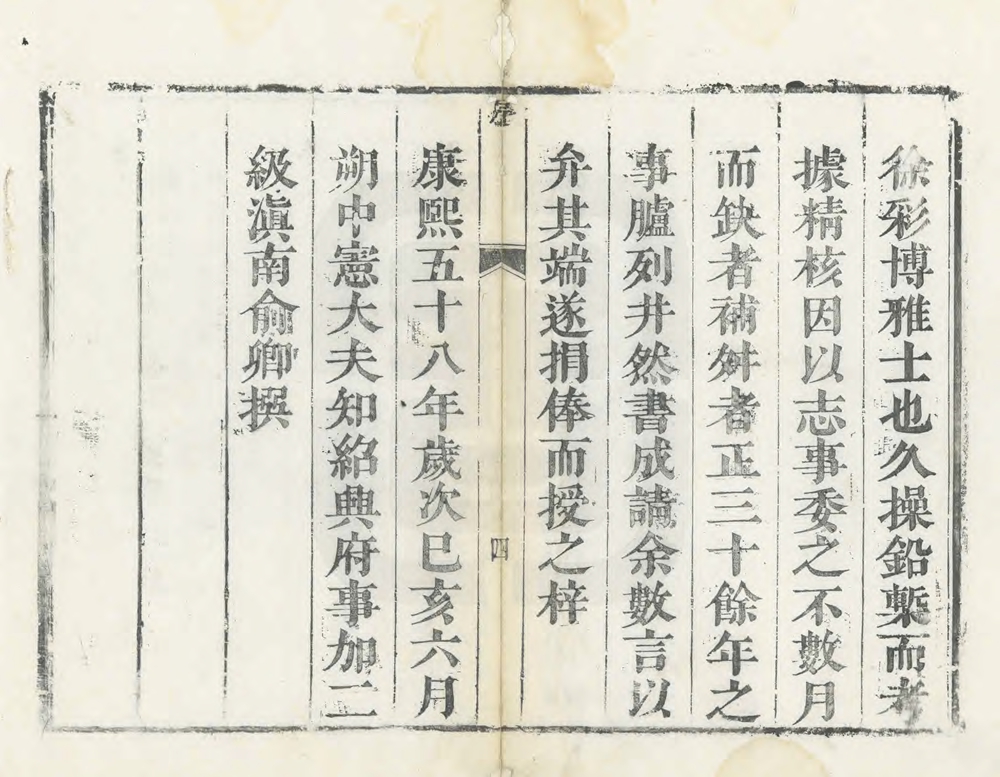 徐彩博雅士也久操鉛槧而考
據精核因以志事委之不數月
而缺者補舛者正三十餘年之
事臚列井然書成請余數言以
弁其端遂捐俸而授之梓
序
四
康熙五十八年歲次己亥六月
朔中憲大夫知紹興府事加二
級滇南俞卿撰